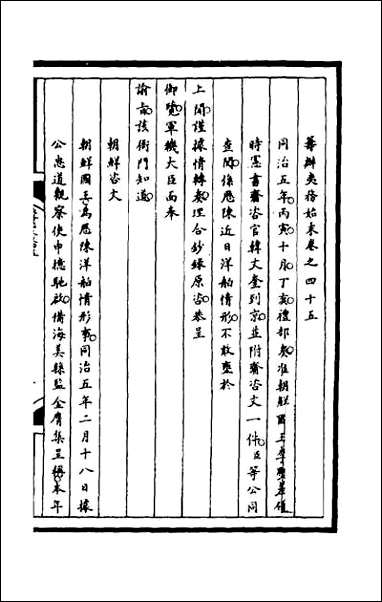 籌辦夷務始末卷之四十五
同治五年丙寅十月丁亥禮部奏准朝鮮國王專價
時憲書齎咨官韓文奎到京並附齎咨文一件臣等公同
查閱係歷陳近日洋舶情形不敢壅於
上聞謹據情轉奏理合鈔錄原咨恭呈
御覽軍機大臣面奉
諭旨該衙門知道
朝鮮咨文
朝鮮國王為歷陳洋舶情形事同治五年二月十八日據
公忠道觀察使申檍馳啟備海美縣監金膺集呈稱本年